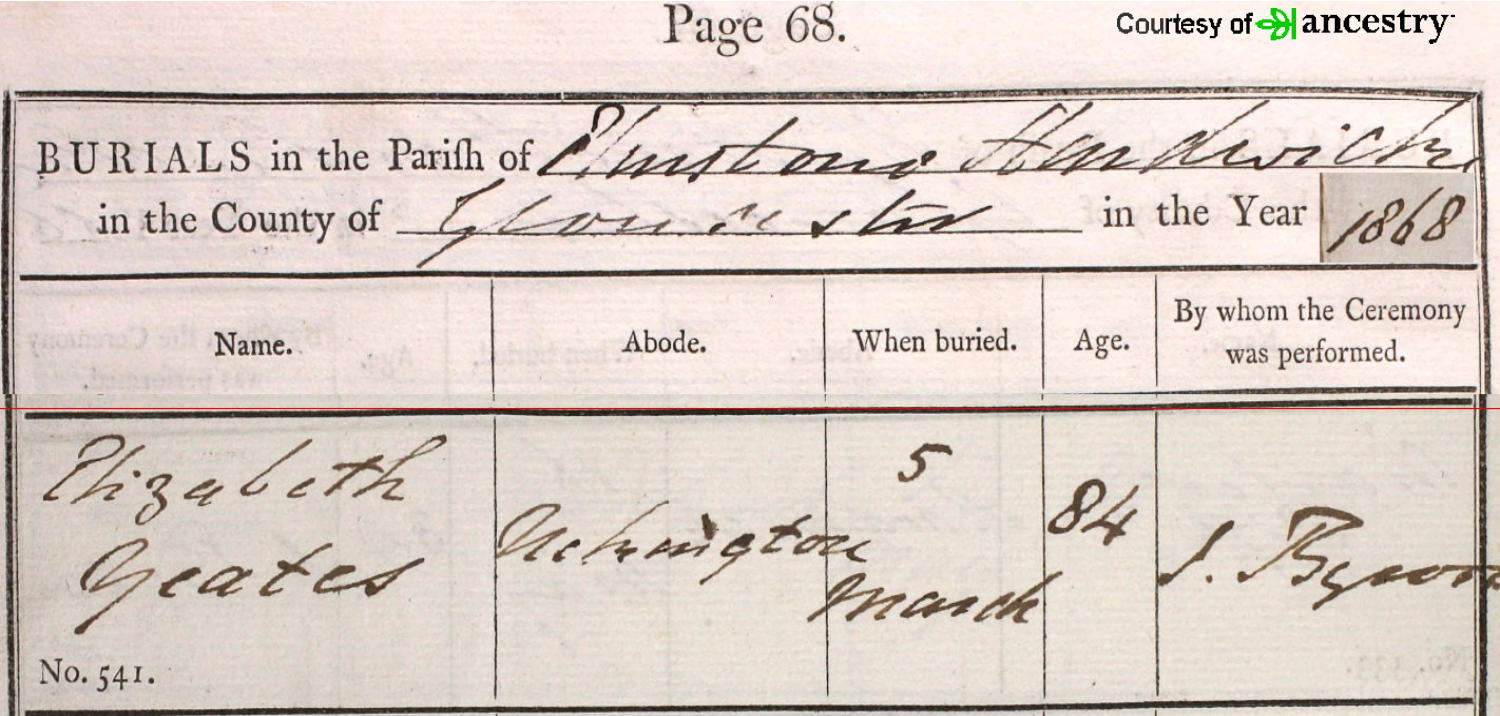 Page 68.
Courtesy of ancestry
BURIALS in the Pariſh of Elmstone Hardwicke
in the County of Gloucester in the Year 1868
Name.
Abode.
When buried.
Age.
By whom the Ceremony
was performed.
Elizabeth
Yeates
Uckington
5
March
84
J. Byron
No. 541.